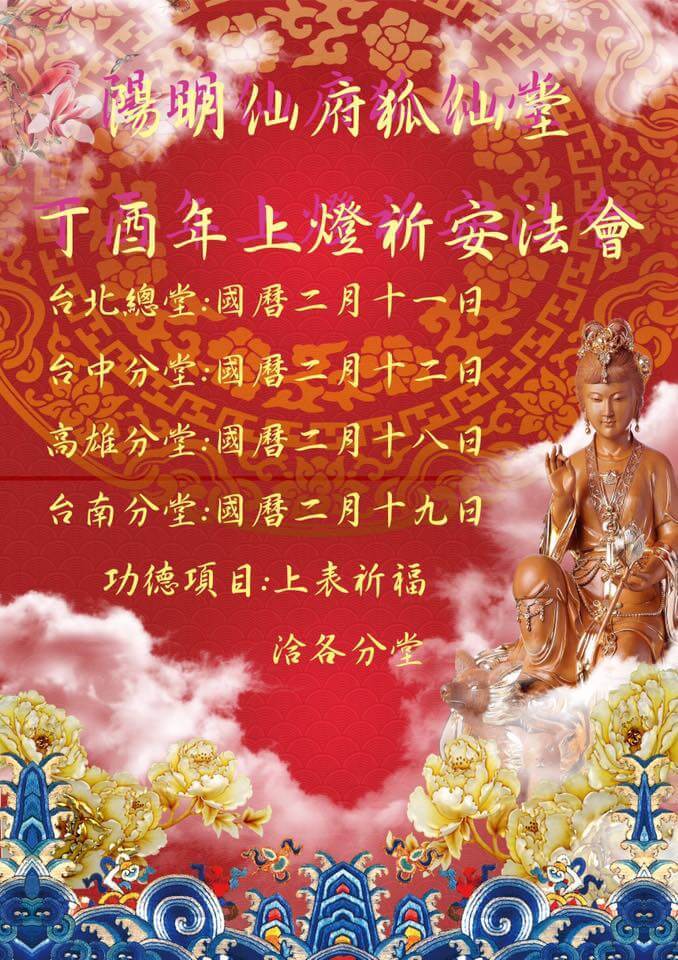 陽明仙府狐仙堂
丁酉年上燈祈安法會
台北總堂:國曆二月十一日
台中分堂:國曆二月十二日
高雄分堂:國曆二月十八日
台南分堂:國曆二月十九日
功德項目:上表祈福
洽各分堂